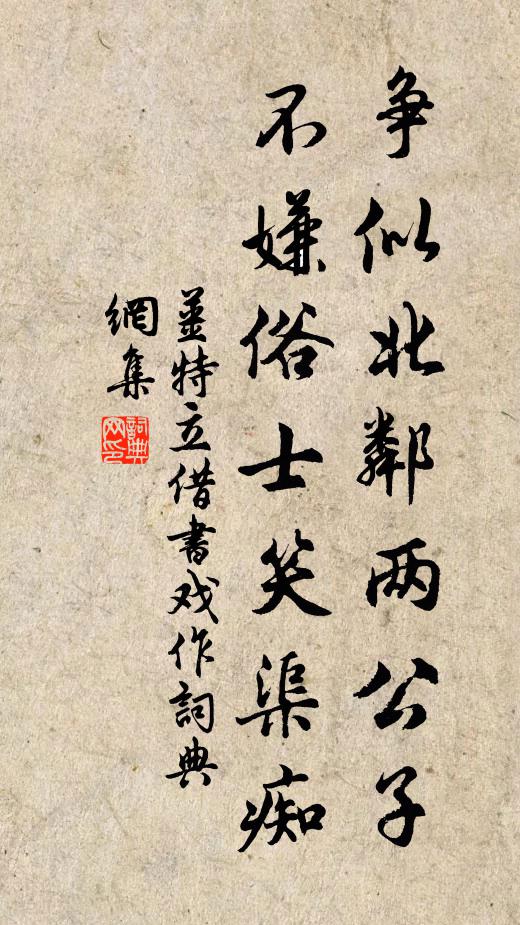 争似北鄰两公子
不嫌俗士笑渠痴
姜特立借書戏作詞典
網集
詞典
网印